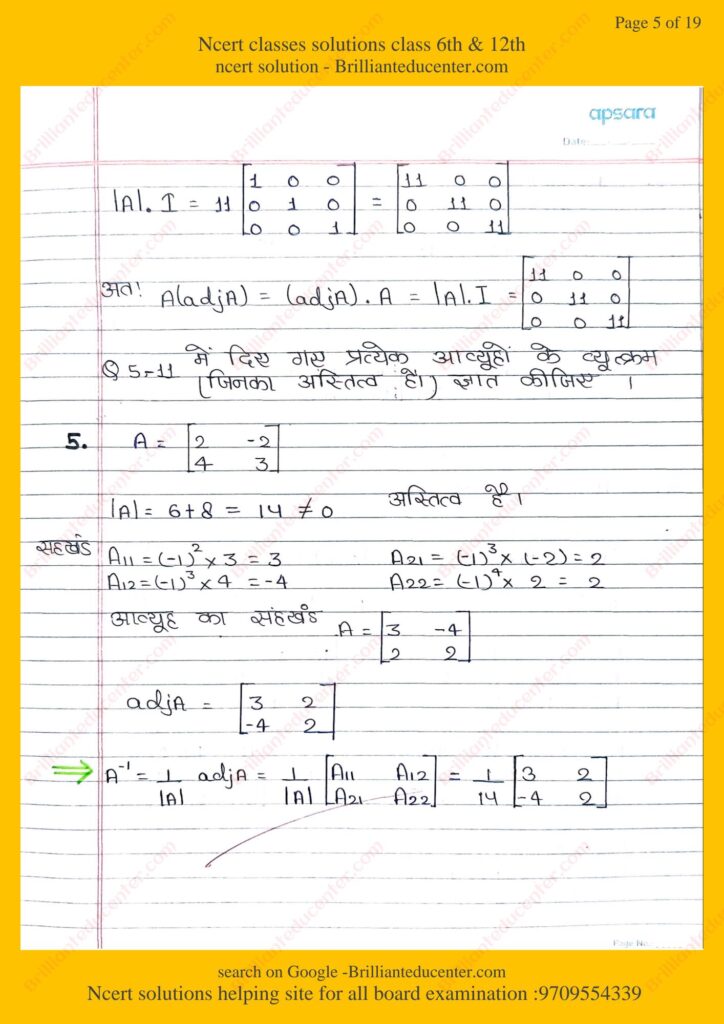 Page 5 of 19
Ncert classes solutions class 6th & 12th
ncert solution - Brillianteducenter.com
apsara
Date:
|A|. I = 11 [1 0 0; 0 1 0; 0 0 1] = [11 0 0; 0 11 0; 0 0 11]
अत! A(adjA) = (adjA). A = |A|. I = [11 0 0; 0 11 0; 0 0 11]
Q 5-11 में दिए गए प्रत्येक आव्यूहों के व्युत्क्रम
(जिनका अस्तित्व है।) ज्ञात कीजिए ।
5. A = [2 -2; 4 3]
|A| = 6+8 = 14 ≠ 0 अस्तित्व है।
सहखंड A11 = (-1)² × 3 = 3 A21 = (-1)³ × (-2) = 2
A12 = (-1)³ × 4 = -4 A22 = (-1)⁴ × 2 = 2
आव्यूह का संहखंड A = [3 -4; 2 2]
adjA = [3 2; -4 2]
⇒ A⁻¹ = 1/|A| adjA = 1/|A| [A11 A12; A21 A22] = 1/14 [3 2; -4 2]
Page No.
search on Google -Brillianteducenter.com
Ncert solutions helping site for all board examination :9709554339
Brillianteducenter.com